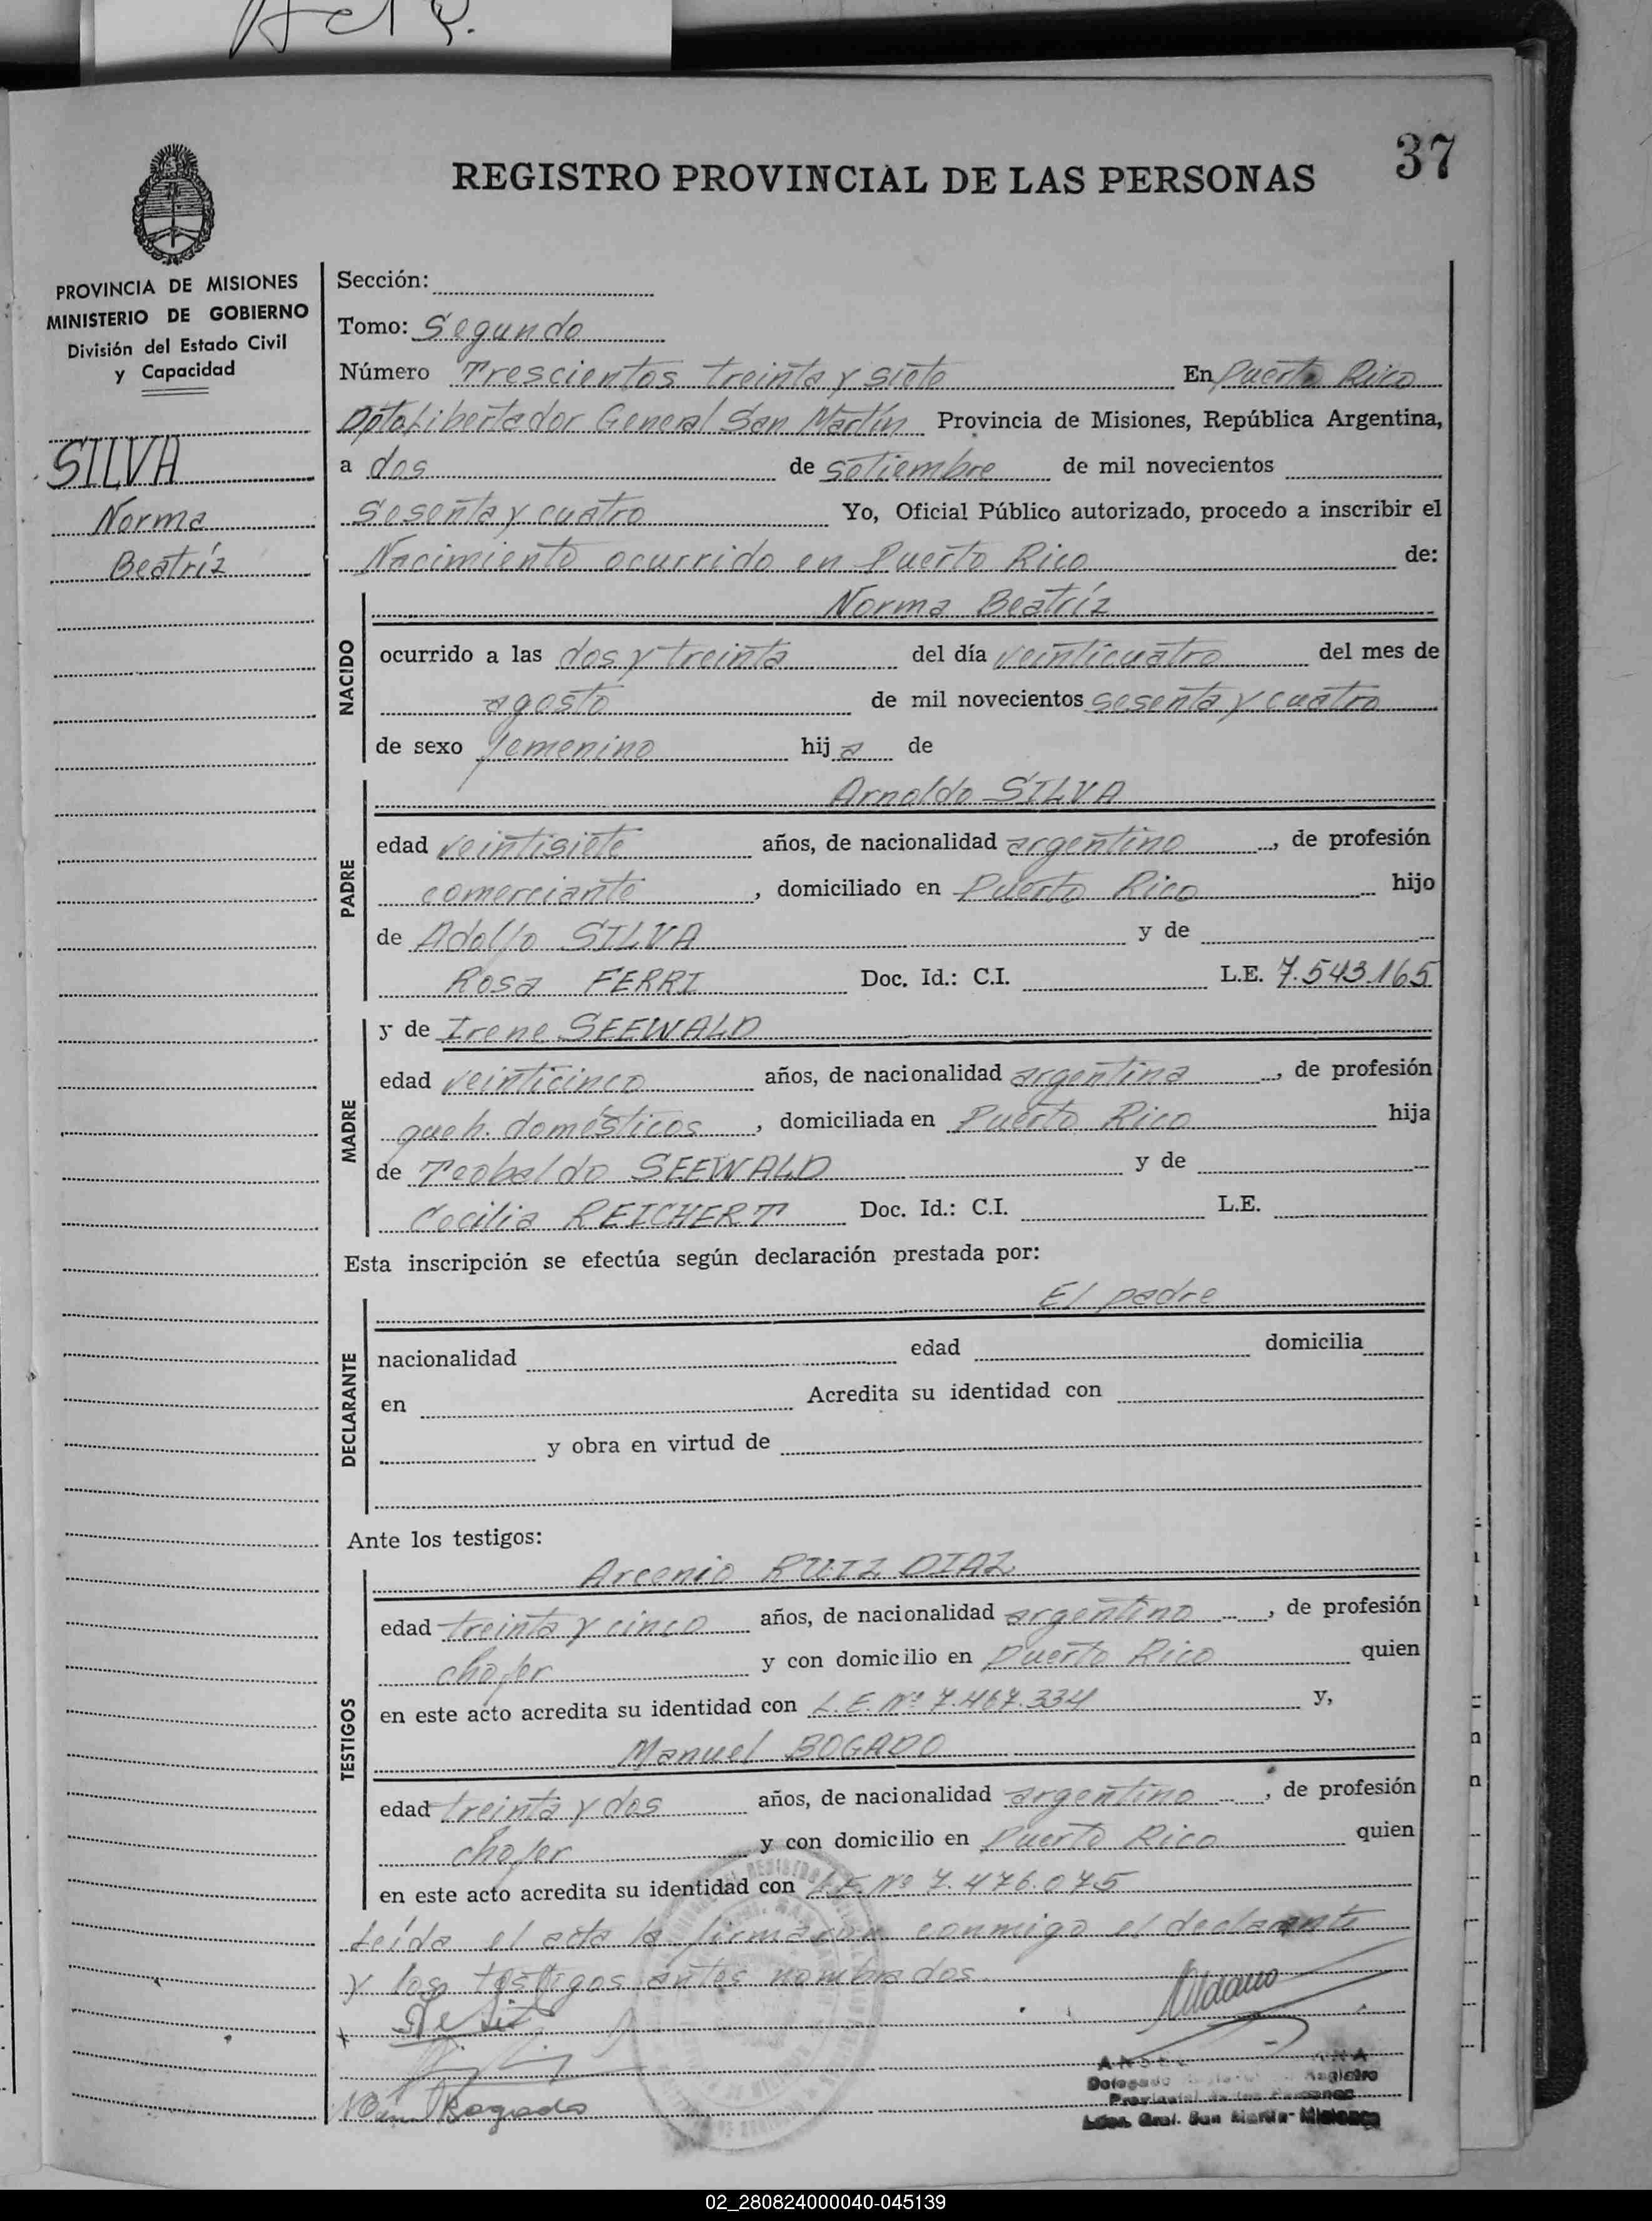 37
REGISTRO PROVINCIAL DE LAS PERSONAS
PROVINCIA DE MISIONES
MINISTERIO DE GOBIERNO
División del Estado Civil
y Capacidad
SILVA
Norma
Beatríz
Sección:
Tomo: Segundo
Número Trescientos treinta y siete En Puerto Rico
Dpto Libertador General San Martín Provincia de Misiones, República Argentina,
a dos de setiembre de mil novecientos
sesenta y cuatro Yo, Oficial Público autorizado, procedo a inscribir el
Nacimiento ocurrido en Puerto Rico de:
NACIDO
Norma Beatríz
ocurrido a las dos y treinta del día veinticuatro del mes de
agosto de mil novecientos sesenta y cuatro
de sexo femenino hij a de
PADRE
Arnoldo SILVA
edad veintisiete años, de nacionalidad argentino, de profesión
comerciante, domiciliado en Puerto Rico hijo
de Adolfo SILVA y de
Rosa FERRI Doc. Id.: C.I. L.E. 7.543.165
MADRE
y de Irene SEEWALD
edad veinticinco años, de nacionalidad argentina, de profesión
queh. domésticos, domiciliada en Puerto Rico hija
de Teobaldo SEEWALD y de
Cecilia REICHERT Doc. Id.: C.I. L.E.
Esta inscripción se efectúa según declaración prestada por:
DECLARANTE
El padre
nacionalidad edad domicilia
en Acredita su identidad con
y obra en virtud de
Ante los testigos:
TESTIGOS
Arcenio RUIZ DIAZ
edad treinta y cinco años, de nacionalidad argentino, de profesión
chofer y con domicilio en Puerto Rico quien
en este acto acredita su identidad con L.E. Nº 7.467.334 y,
Manuel BOGADO
edad treinta y dos años, de nacionalidad argentino, de profesión
chofer y con domicilio en Puerto Rico quien
en este acto acredita su identidad con L.E. Nº 7.476.075
Leída el acta la firmaron conmigo el declarante
y los testigos antes nombrados.
Bogado
Delegado Registro
Provincial de las Personas
Ldor. Gral. San Martín - Misiones
02_280824000040-045139